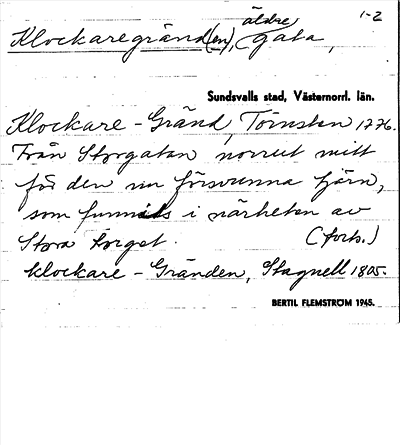 1-2
Klockaregränd(en), äldre gata,
Sundsvalls stad, Västernorrl. län.
Klockare-Gränd, Törnsten 1776.
Från Storgatan norrut mitt
för den nu försvunna tjärn,
som funnits i närheten av
Stora Torget. (forts.)
Klockare-Gränden, Stagnell 1805.
BERTIL FLEMSTRÖM 1945.